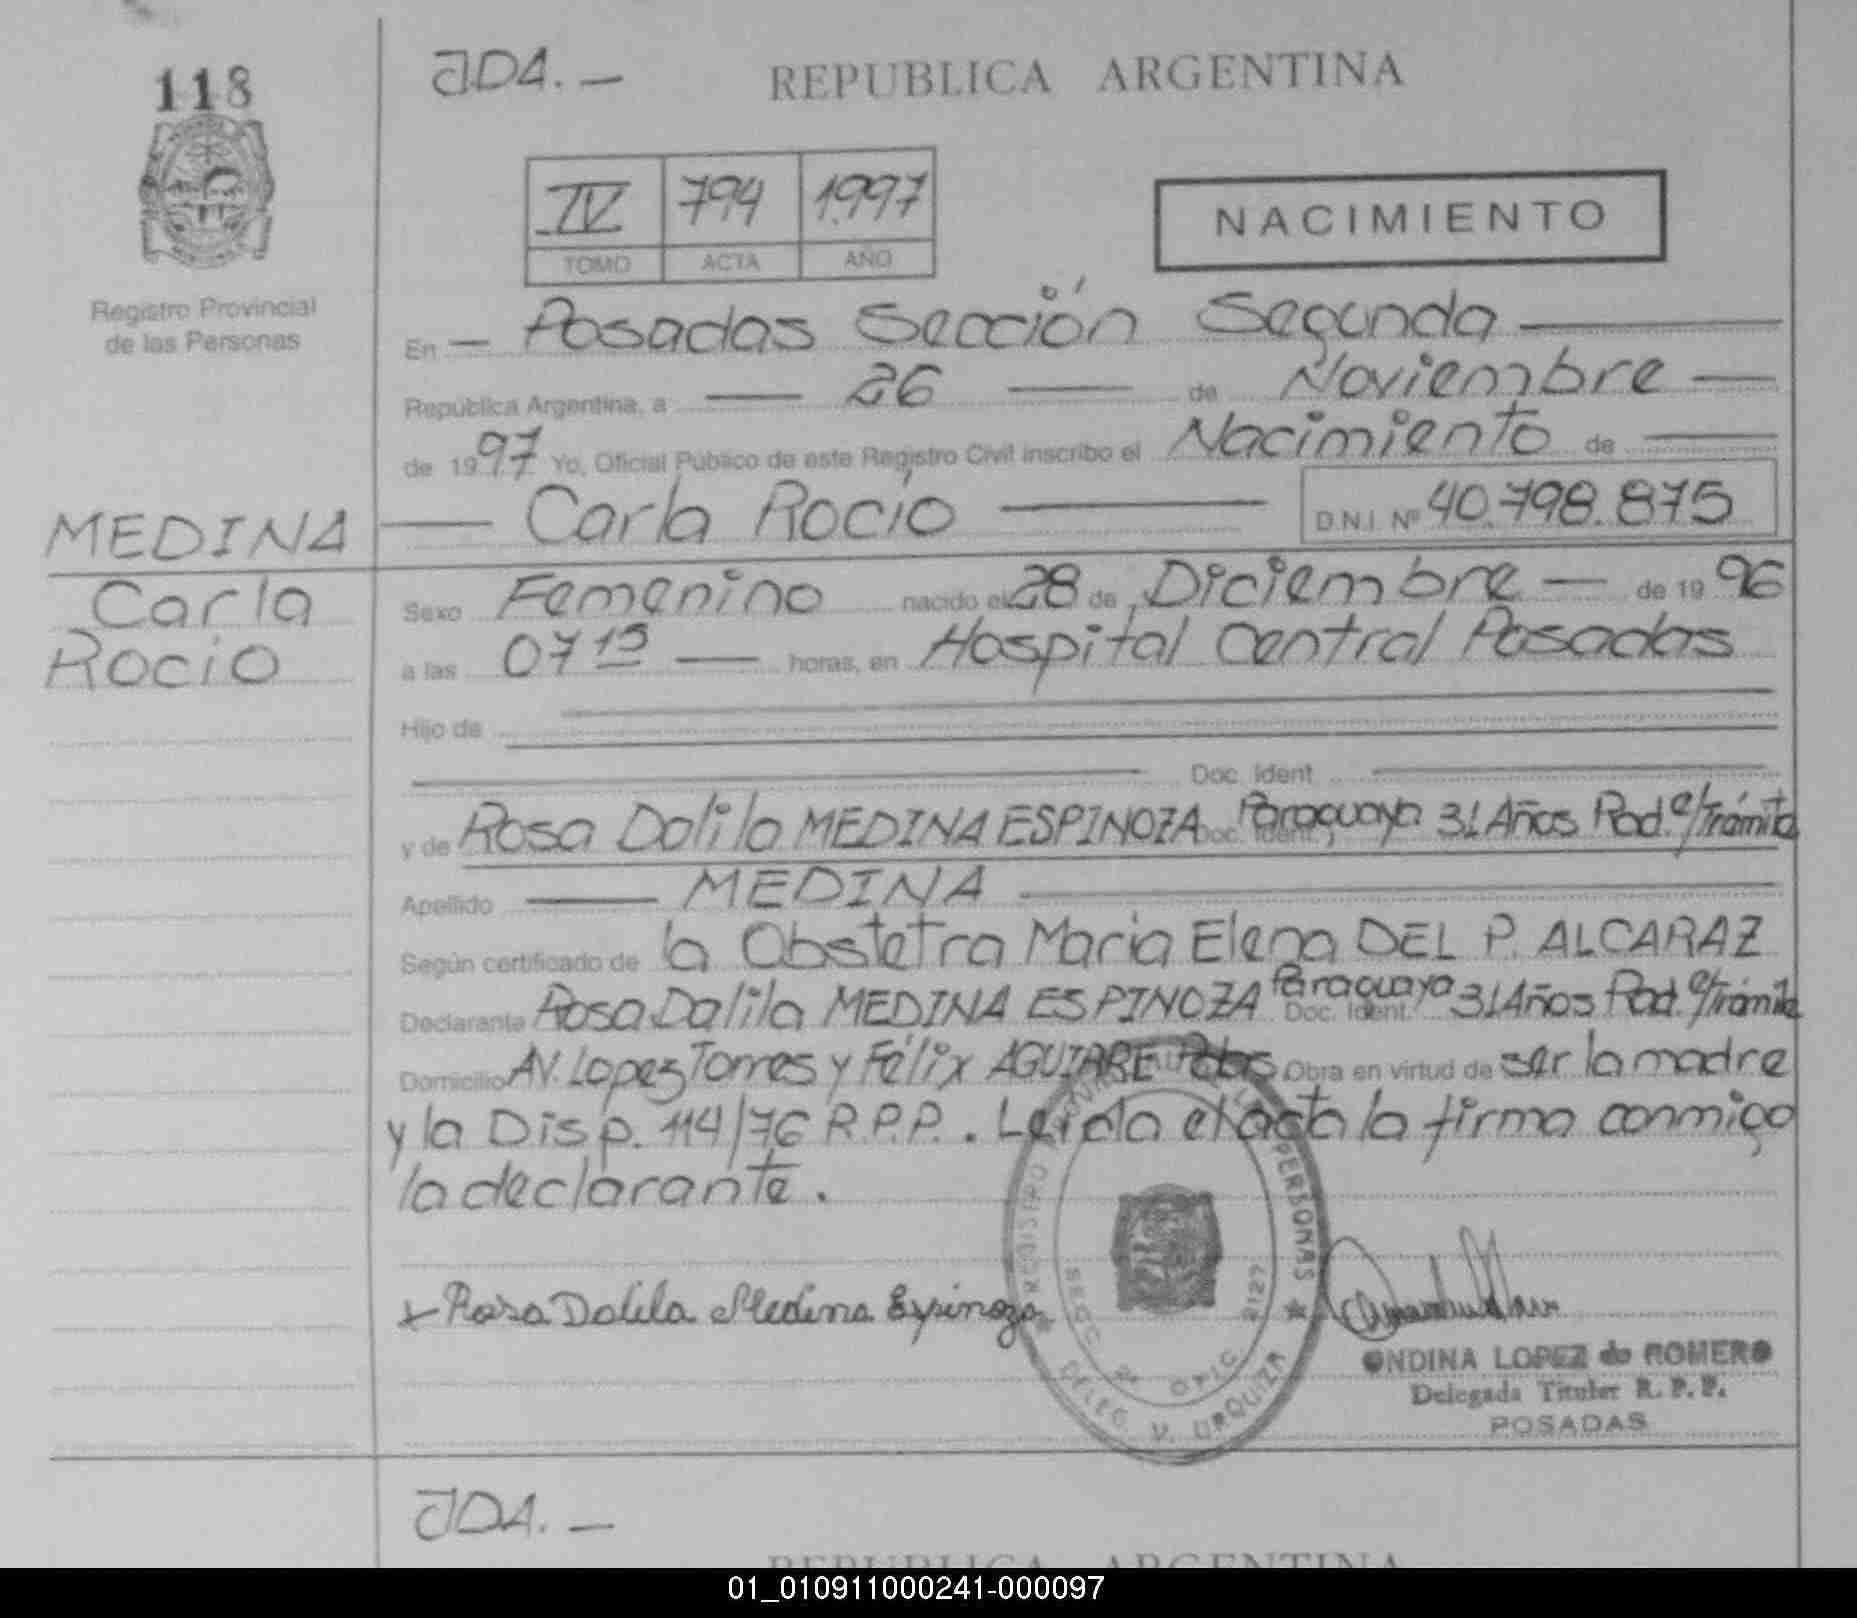 118
JDA. —
REPUBLICA ARGENTINA
IV 794 1997
TOMO ACTA AÑO
NACIMIENTO
Registro Provincial
de las Personas
En — Posadas Sección Segunda —
República Argentina, a — 26 — de Noviembre —
de 1997 Yo, Oficial Público de este Registro Civil inscribo el Nacimiento de —
MEDINA — Carla Rocío — D.N.I. Nº 40.798.875
Carla
Rocio
Sexo Femenino nacido el 28 de Diciembre — de 1996
a las 07 15 — horas, en Hospital Central Posadas
Hijo de
Doc. Ident.
y de Rosa Dalila MEDINA ESPINOZA Doc. Ident. Paraguaya 31 Años Rad. e/trámite
Apellido — MEDINA —
Según certificado de la Obstetra Maria Elena DEL P. ALCARAZ
Declarante Rosa Dalila MEDINA ESPINOZA Doc. Ident. Paraguaya 31 Años Rad. e/trámite
Domicilio AV. Lopez Torres y Félix AGUIRRE Pdas Obra en virtud de ser la madre
y la Disp. 114/76 R.P.P.. Leida el acta la firma conmigo
la declarante.
x Rosa Dalila Medina Espinoza
REGISTRO DE LAS PERSONAS
SECC. 2ª OFIC. 2127
DELEG. V. URQUIZA
ONDINA LOPEZ de ROMERO
Delegada Titular R. P. P.
POSADAS
JDA. —
REPUBLICA ARGENTINA
01_010911000241-000097